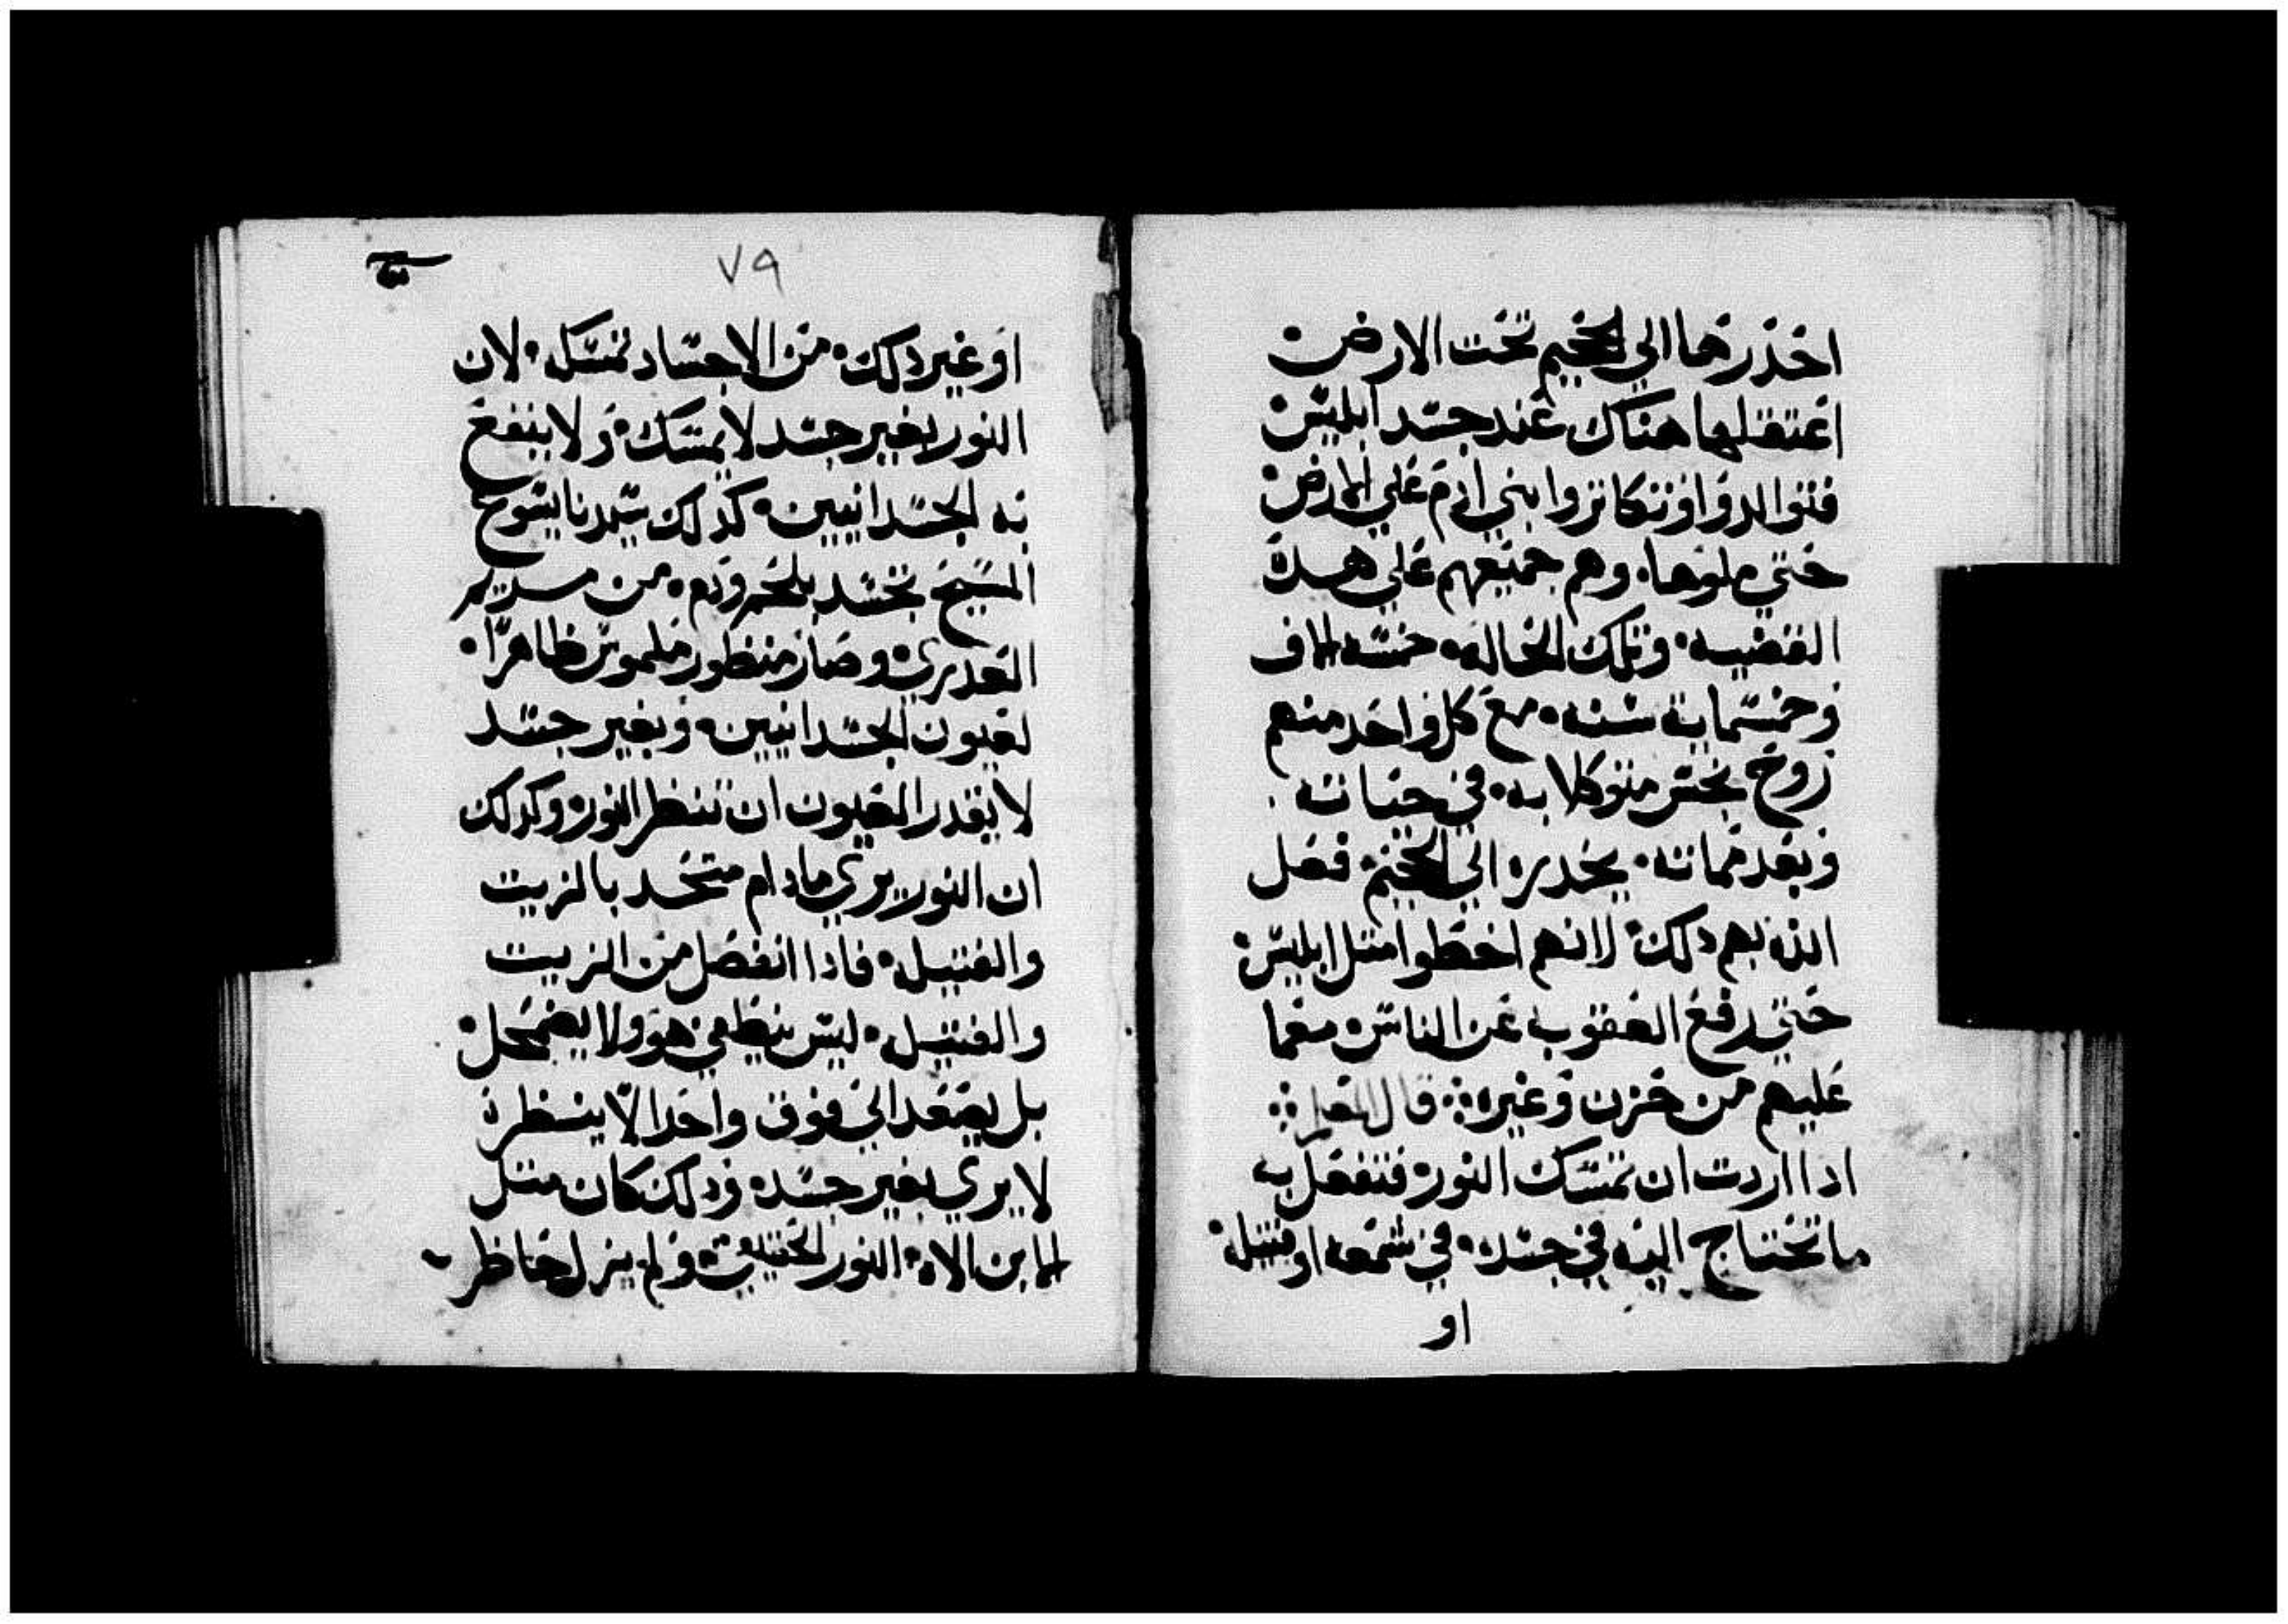 احدرها الي الجحيم تحت الارض
اعتقلها هناك عند جسد ابليس
فتوالدوا وتكاتروا بني ادم علي الارض
حتي ملوها. وهم جميعهم علي هدة
القضيه. وتلك الحاله. خمسه الاف
وخمسمايه سنه. مع كل واحد منهم
روح نجس متوكلا به. في حياته
وبعد مماته. يحدره الي الجحيم. فعل
الله بهم دلك. لانهم اخطوا متل ابليس.
حتي رفع العقوبه عن الناس. معما
عليهم من حزن وغيره ܀ قال المعلم ܀
ادا اردت ان تمسك النور. فتفعل به
ما تحتاج اليه في جسد. في شمعه او فتيله.
او
٧٩
او غير دلك. من الاجساد تمسكه. لان
النور بغير جسد لا يمسك. ولا ينفع
به الجسدانيين. كدلك سيدنا يسوع
المسيح تجسد بلحم ودم. من مريم
العدري. وصار منظور ملموس ظاهرا.
لعيون الجسدانيين. وبغير جسد
لا يقدر العيون ان تنظر النور. وكدلك
ان النور يري مادام متحد بالزيت
والفتيله. فادا انفصل من الزيت
والفتيله. ليس ينطفي هو ولا يضمحل.
بل يصعد الي فوق واحدا لا ينظرة
لا يري بغير جسد. ودلك كان متل
الابن الاه. النور الحقيقي. ولم يزل حاظر